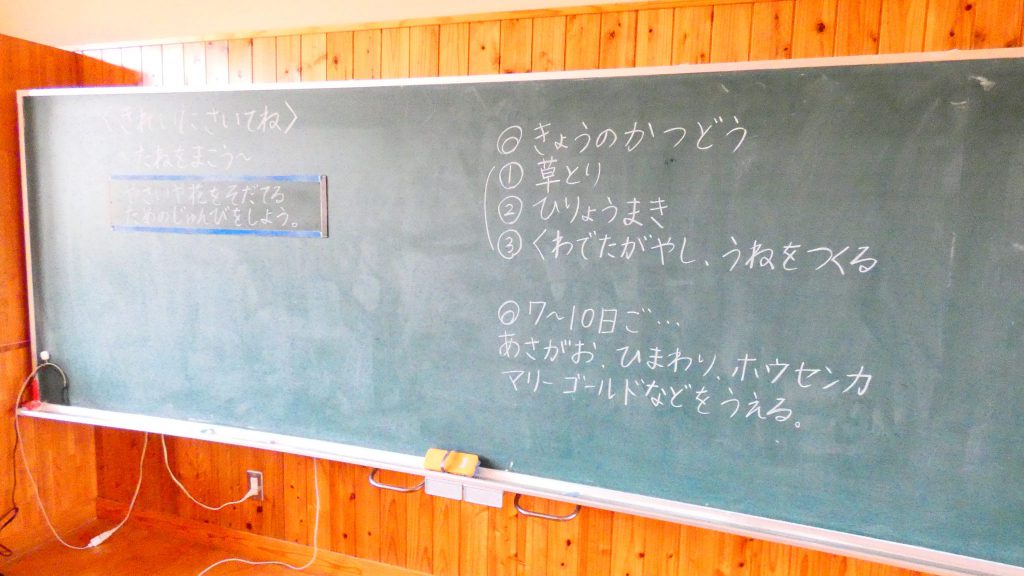 〈きれいにさいてね〉
~たねをまこう~
やさいや花をそだてる
ためのじゅんびをしよう。
◎きょうのかつどう
①草とり
②ひりょうまき
③くわでたがやし、うねをつくる
◎7~10日ご…
あさがお、ひまわり、ホウセンカ
マリーゴールドなどをうえる。